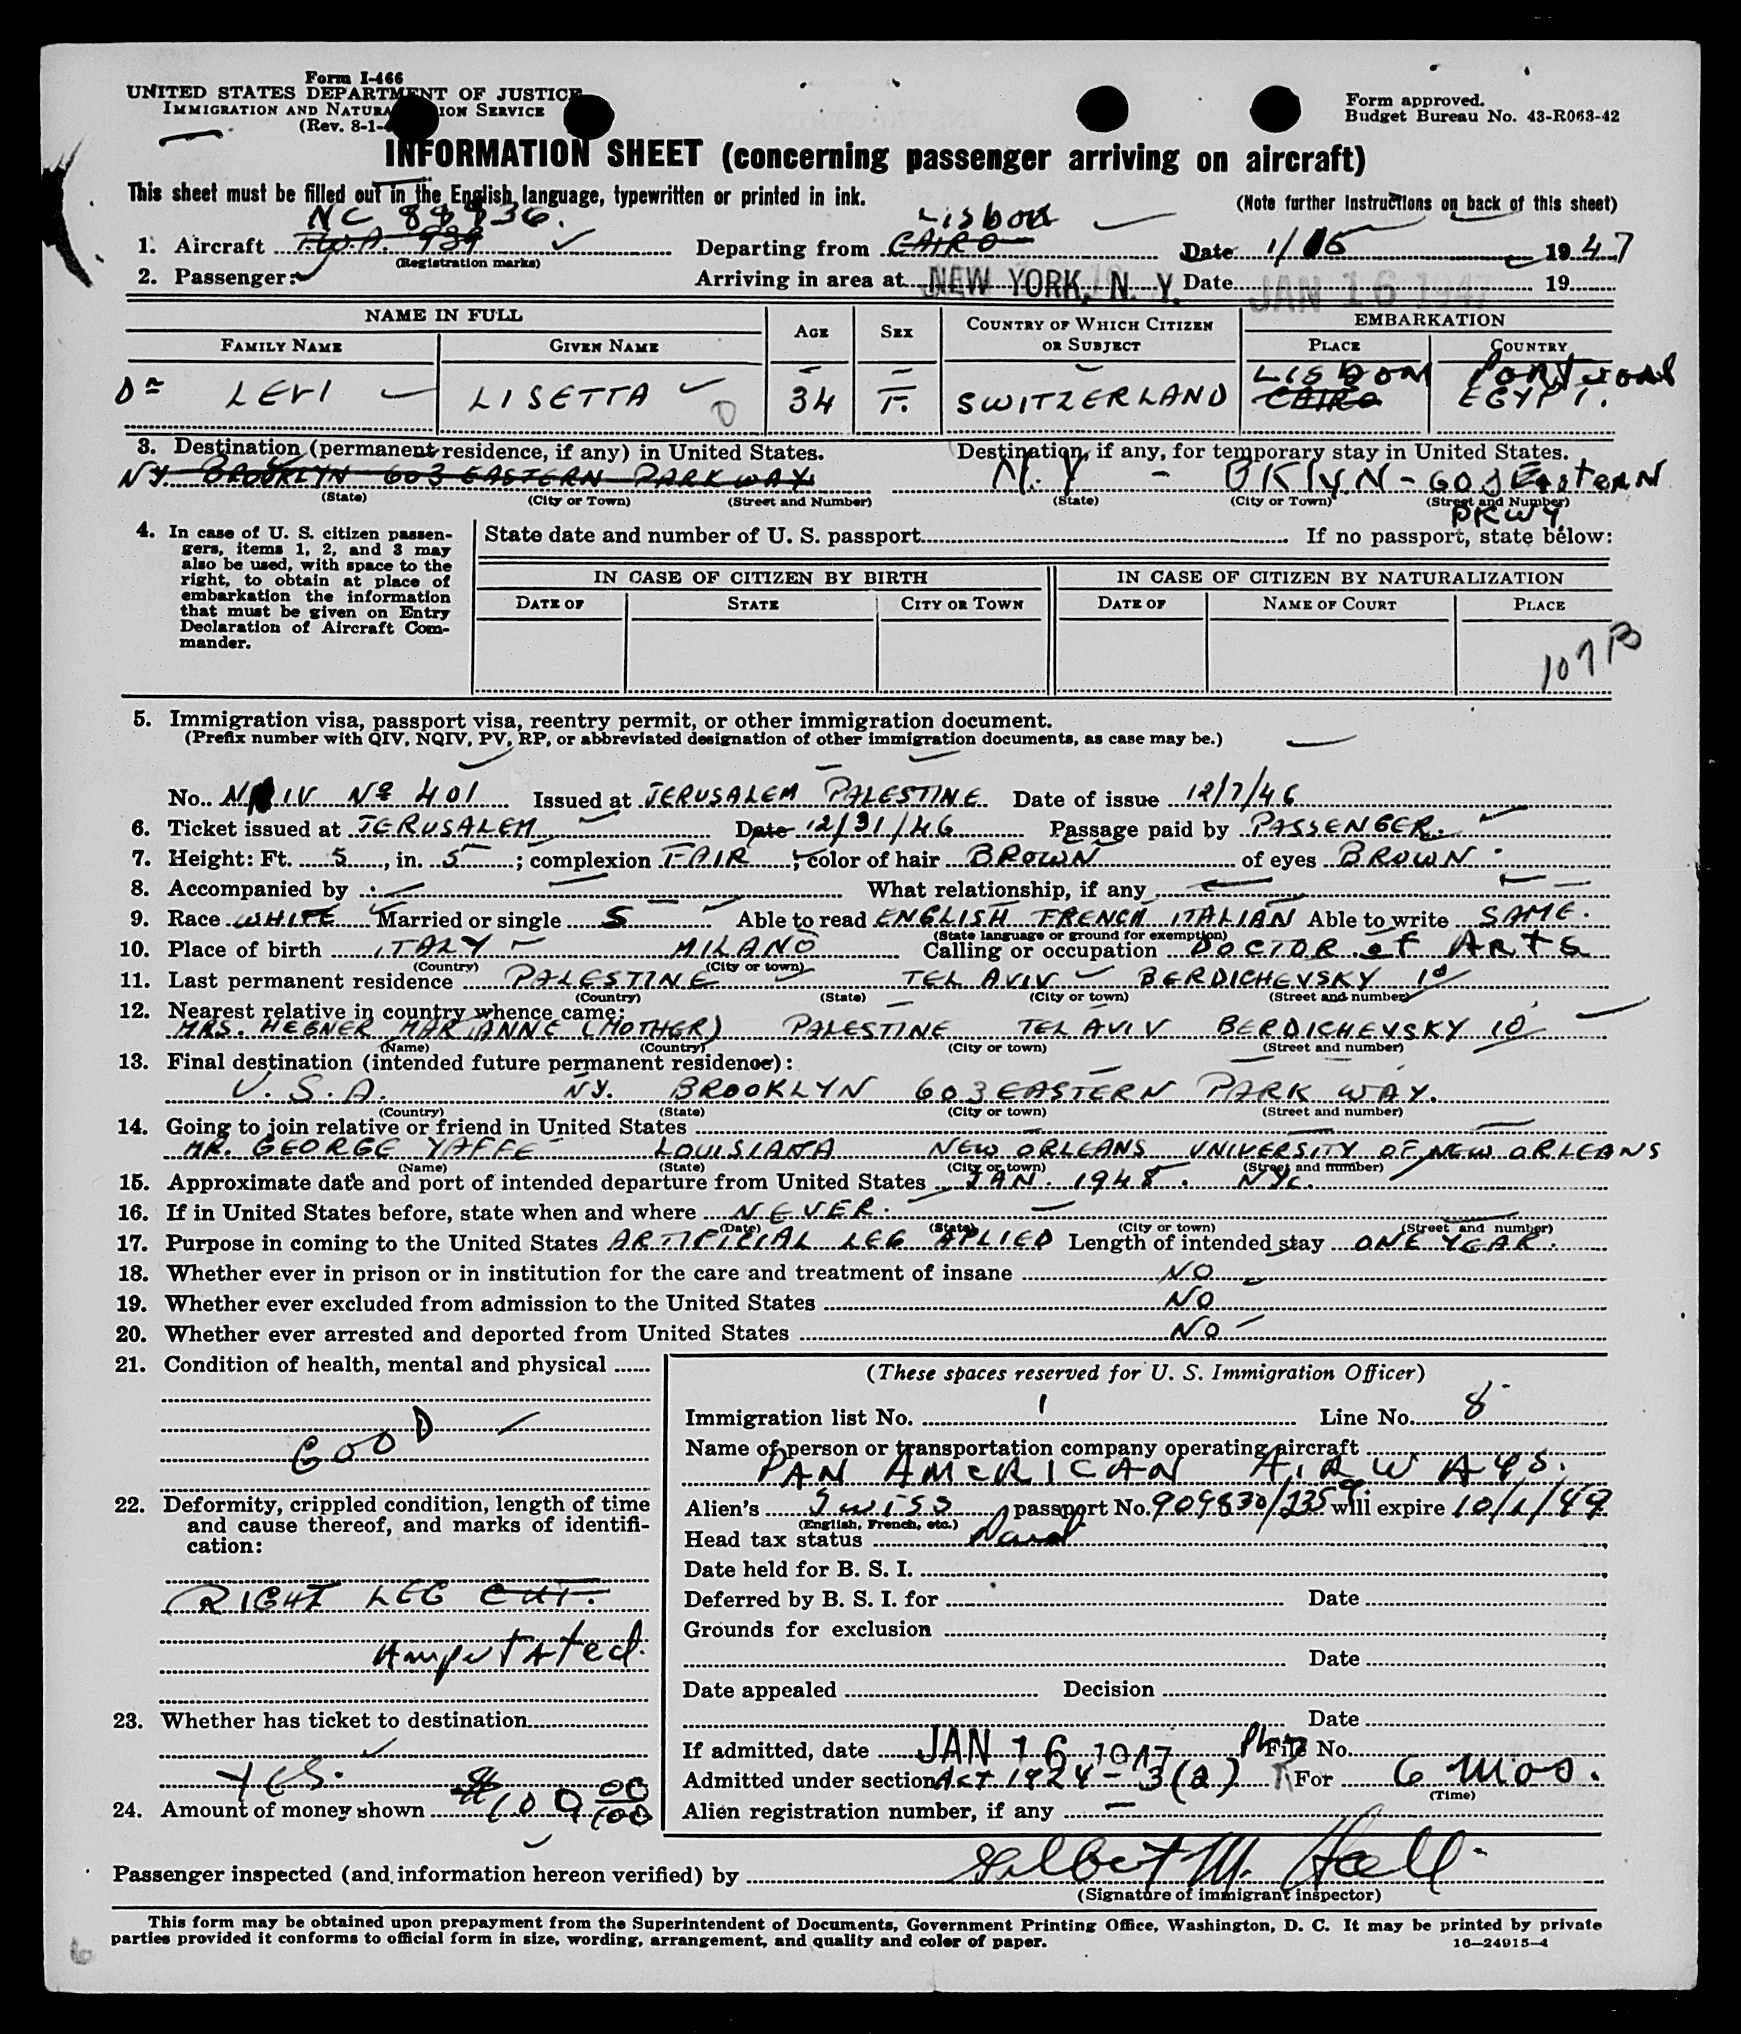 Form I-466
UNITED STATES DEPARTMENT OF JUSTICE
IMMIGRATION AND NATURALIZATION SERVICE
(Rev. 8-1-
Form approved.
Budget Bureau No. 43-R063-42
INFORMATION SHEET (concerning passenger arriving on aircraft)
This sheet must be filled out in the English language, typewritten or printed in ink.
(Note further Instructions on back of this sheet)
NC 88936. Lisbon
1. Aircraft T.W.A. 939 Departing from CAIRO Date 1/15 1947
(Registration marks)
2. Passenger: Arriving in area at NEW YORK, N. Y. Date JAN 16 1947 19
NAME IN FULL AGE SEX COUNTRY OF WHICH CITIZEN OR SUBJECT EMBARKATION
FAMILY NAME GIVEN NAME PLACE COUNTRY
LISBON Portugal
Dr LEVI LISETTA 34 F. SWITZERLAND CAIRO EGYPT.
3. Destination (permanent residence, if any) in United States. Destination, if any, for temporary stay in United States.
NY BROOKLYN 603 EASTERN PARKWAY N.Y - BKLYN - 603 Eastern
(State) (City or Town) (Street and Number) (State) (City or Town) (Street and Number)
PKWY.
4. In case of U. S. citizen passengers, items 1, 2, and 3 may also be used, with space to the right, to obtain at place of embarkation the information that must be given on Entry Declaration of Aircraft Commander.
State date and number of U. S. passport If no passport, state below:
IN CASE OF CITIZEN BY BIRTH IN CASE OF CITIZEN BY NATURALIZATION
DATE OF STATE CITY OR TOWN DATE OF NAME OF COURT PLACE
107B
5. Immigration visa, passport visa, reentry permit, or other immigration document.
(Prefix number with QIV, NQIV, PV, RP, or abbreviated designation of other immigration documents, as case may be.)
No. IV No 401 Issued at JERUSALEM PALESTINE Date of issue 12/7/46
6. Ticket issued at JERUSALEM Date 12/31/46 Passage paid by PASSENGER.
7. Height: Ft. 5, in. 5; complexion FAIR; color of hair BROWN of eyes BROWN.
8. Accompanied by What relationship, if any
9. Race WHITE Married or single S Able to read ENGLISH FRENCH ITALIAN Able to write SAME.
(State language or ground for exemption)
10. Place of birth ITALY MILANO Calling or occupation DOCTOR of ARTS
(Country) (City or town)
11. Last permanent residence PALESTINE TEL AVIV BERDICHEVSKY 10
(Country) (State) (City or town) (Street and number)
12. Nearest relative in country whence came:
MRS. HEGNER MARIANNE (MOTHER) PALESTINE TEL AVIV BERDICHEVSKY 10
(Name) (Country) (City or town) (Street and number)
13. Final destination (intended future permanent residence):
U.S.A. NY. BROOKLYN 603 EASTERN PARK WAY.
(Country) (State) (City or town) (Street and number)
14. Going to join relative or friend in United States
MR. GEORGE YAFFE LOUISIANA NEW ORLEANS UNIVERSITY OF NEW ORLEANS
(Name) (State) (City or town) (Street and number)
15. Approximate date and port of intended departure from United States JAN. 1948. NYC.
16. If in United States before, state when and where NEVER.
(Date) (State) (City or town) (Street and number)
17. Purpose in coming to the United States ARTIFICIAL LEG APLIED Length of intended stay ONE YEAR.
18. Whether ever in prison or in institution for the care and treatment of insane NO
19. Whether ever excluded from admission to the United States NO
20. Whether ever arrested and deported from United States NO
21. Condition of health, mental and physical
GOOD
22. Deformity, crippled condition, length of time and cause thereof, and marks of identification:
RIGHT LEG CUT.
Amputated.
23. Whether has ticket to destination
Yes.
24. Amount of money shown $100 00/100
(These spaces reserved for U. S. Immigration Officer)
Immigration list No. 1 Line No. 8
Name of person or transportation company operating aircraft
PAN AMERICAN AIRWAYS.
Alien's Swiss passport No. 909830/2359 will expire 10/1/49
(English, French, etc.)
Head tax status
Date held for B. S. I.
Deferred by B. S. I. for Date
Grounds for exclusion
Date
Date appealed Decision
Date
If admitted, date JAN 16 1947 File No.
Admitted under section Act 1924 - 3(2) For 6 mos.
(Time)
Alien registration number, if any —
Passenger inspected (and information hereon verified) by M. Hall
(Signature of immigrant inspector)
This form may be obtained upon prepayment from the Superintendent of Documents, Government Printing Office, Washington, D. C. It may be printed by private
parties provided it conforms to official form in size, wording, arrangement, and quality and color of paper.
16—24915-4